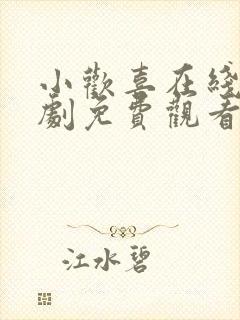 小歡喜在綫
劇免費觀看
江水碧